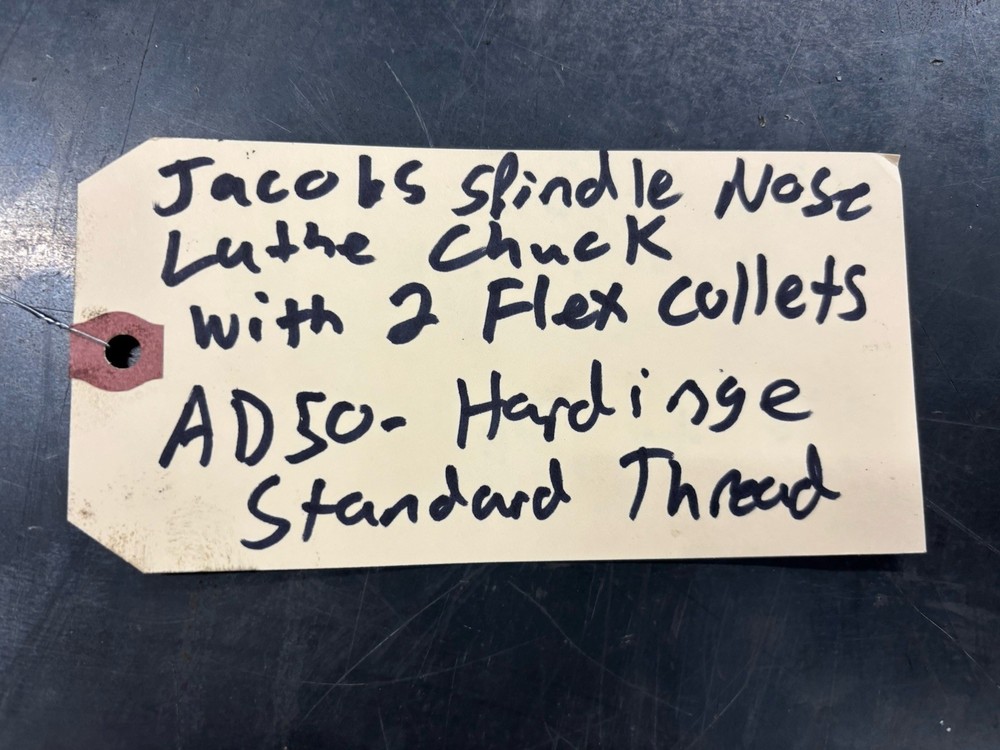 Jacobs Spindle Nose
Lathe Chuck
with 2 Flex collets
AD50- Hardinge
Standard Thread